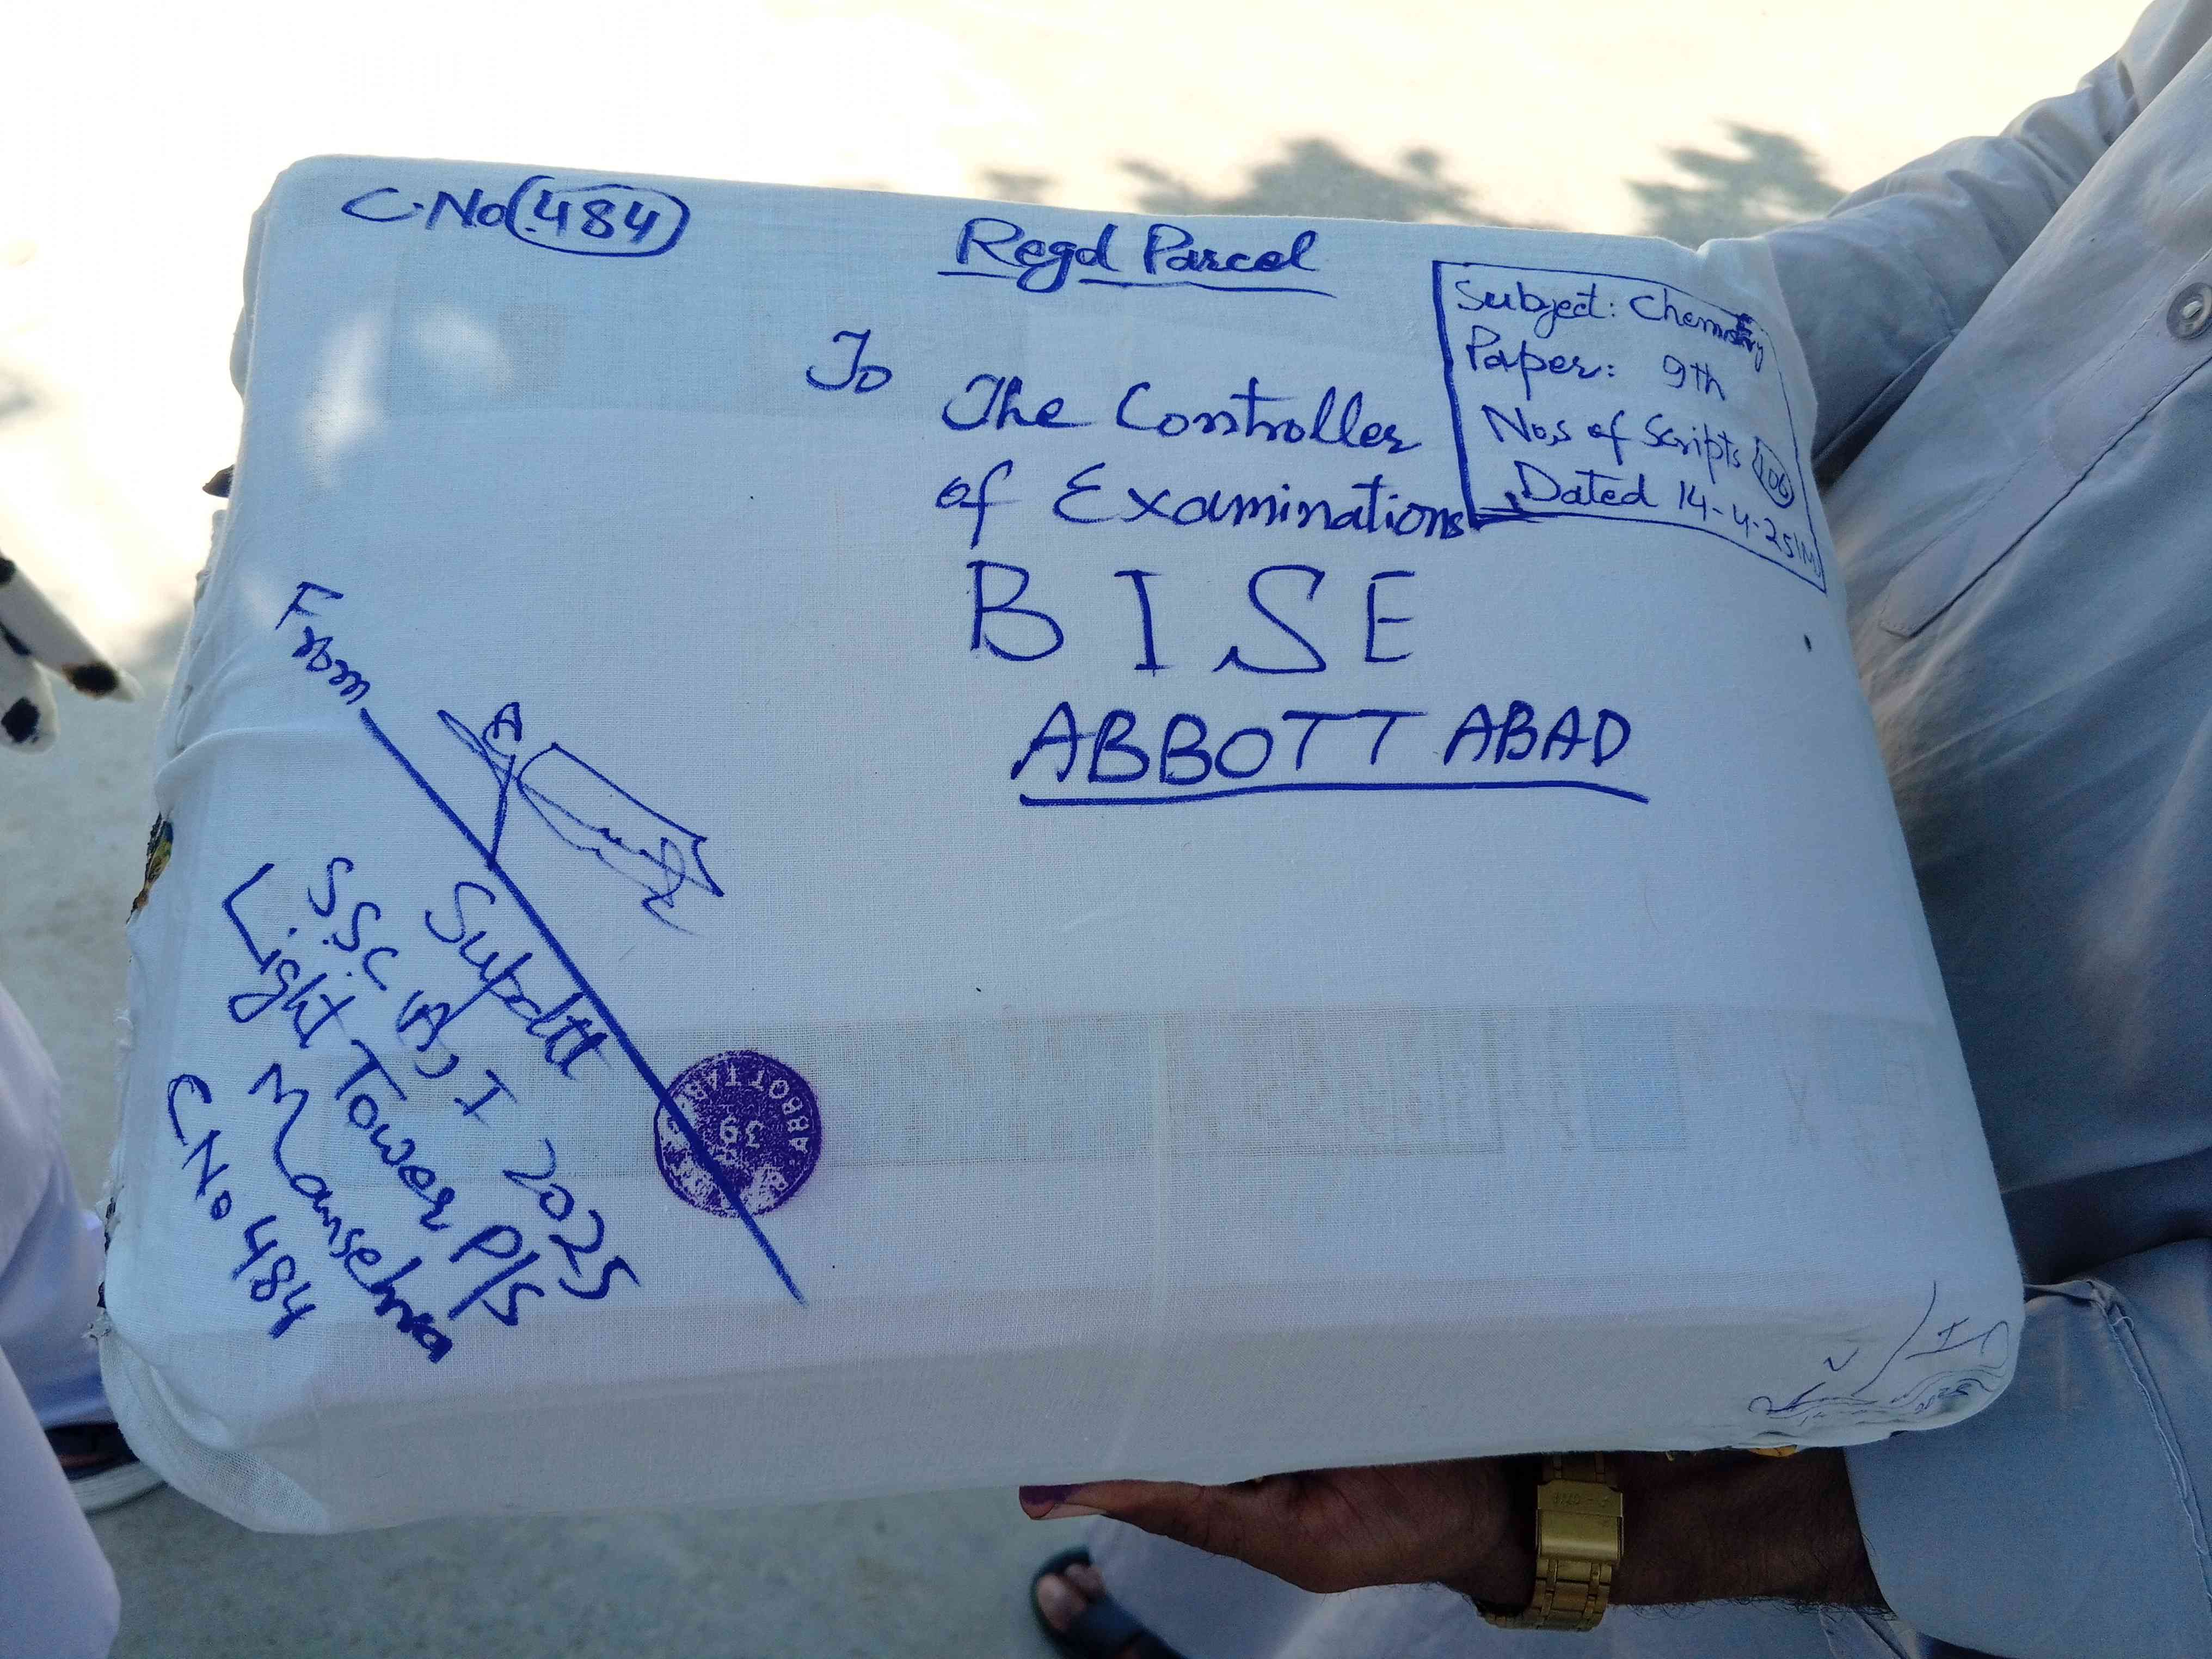 C.No 484
Regd Parcel
Subject: Chemistry
Paper: 9th
Nos of Scripts 106
Dated 14-4-25 M
To
The Controller
of Examinations
B I S E
ABBOTTABAD
From
Supdtt
SSC (A) I 2025
Light Tower P/S
Mansehra
CNo 484
ABBOTTABAD
39